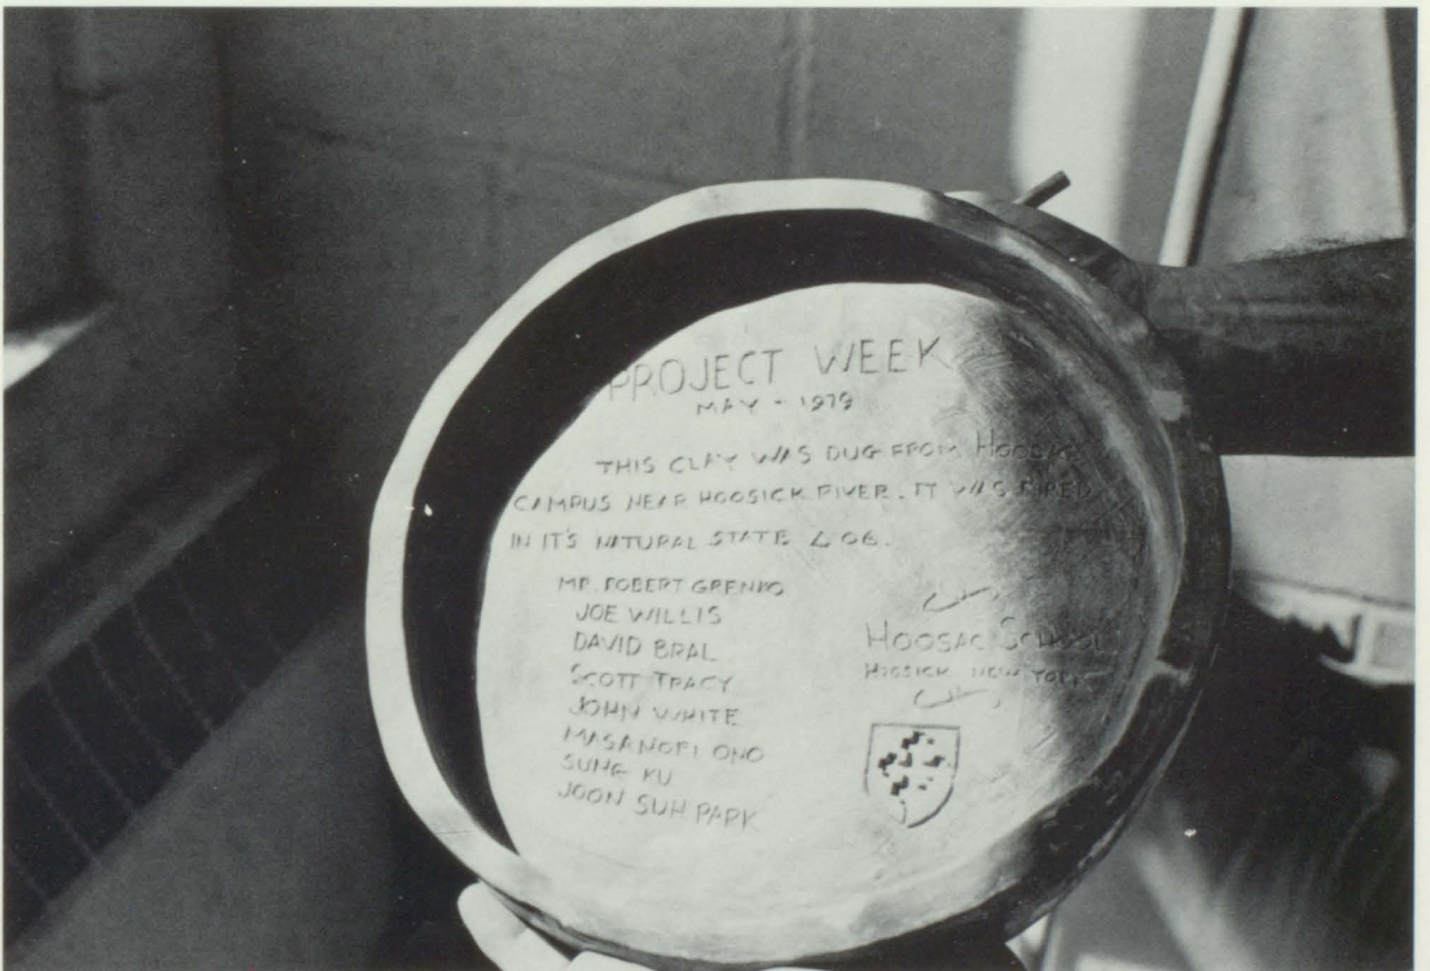 PROJECT WEEK
MAY - 1979
THIS CLAY WAS DUG FROM HOOSAC
CAMPUS NEAR HOOSICK RIVER. IT WAS FIRED
IN IT'S NATURAL STATE ∠ 06.
MR. ROBERT GRENKO
JOE WILLIS
DAVID BRAL
SCOTT TRACY
JOHN WHITE
MASANORI ONO
SUNG KU
JOON SUH PARK
HOOSAC SCHOOL
HOOSICK NEW YORK